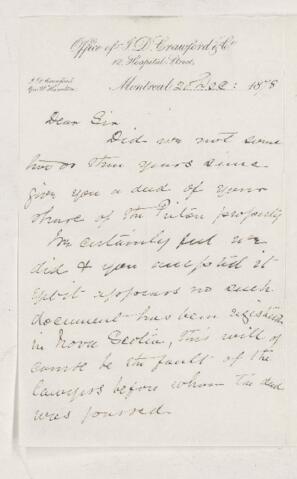 Office of J. D. Crawford & Co
12 Hospital Street,
J. D. Crawford
Montreal 20 Dec: 1878
Dear Sir
Did we not some
two or three years since
give you a deed of your
share of the Picton property
We certainly feel we
did & you accepted it
yet it appears no such
document has been registered
in Nova Scotia, this will of
course be the fault of the
lawyers before whom the deed
was passed.